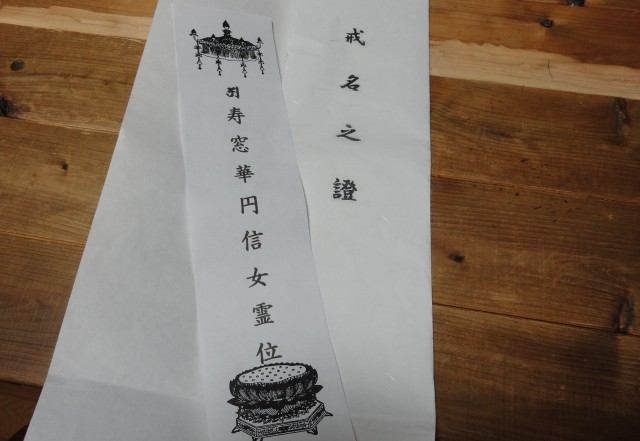 戒名之證
𑖀寿窓華円信女霊位